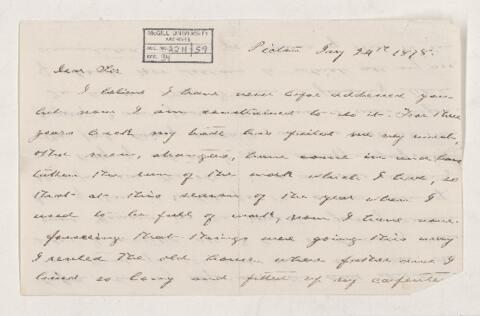 McGILL UNIVERSITY
ARCHIVES
ACC. NO. 2211 59
REF.
Pictou Jany 24th 1878.
Dear Sir
I believe I have never before addressed you
but now I am constrained to do it. For three
years back my trade has failed me very much,
other men, strangers, have come in and have
taken the run of the work which I had, so
that at this season of the year when I
used to be full of work, now I have none.
foreseeing that things were going this way
I rented the old house where father and I
lived so long and fitted up my carpenter